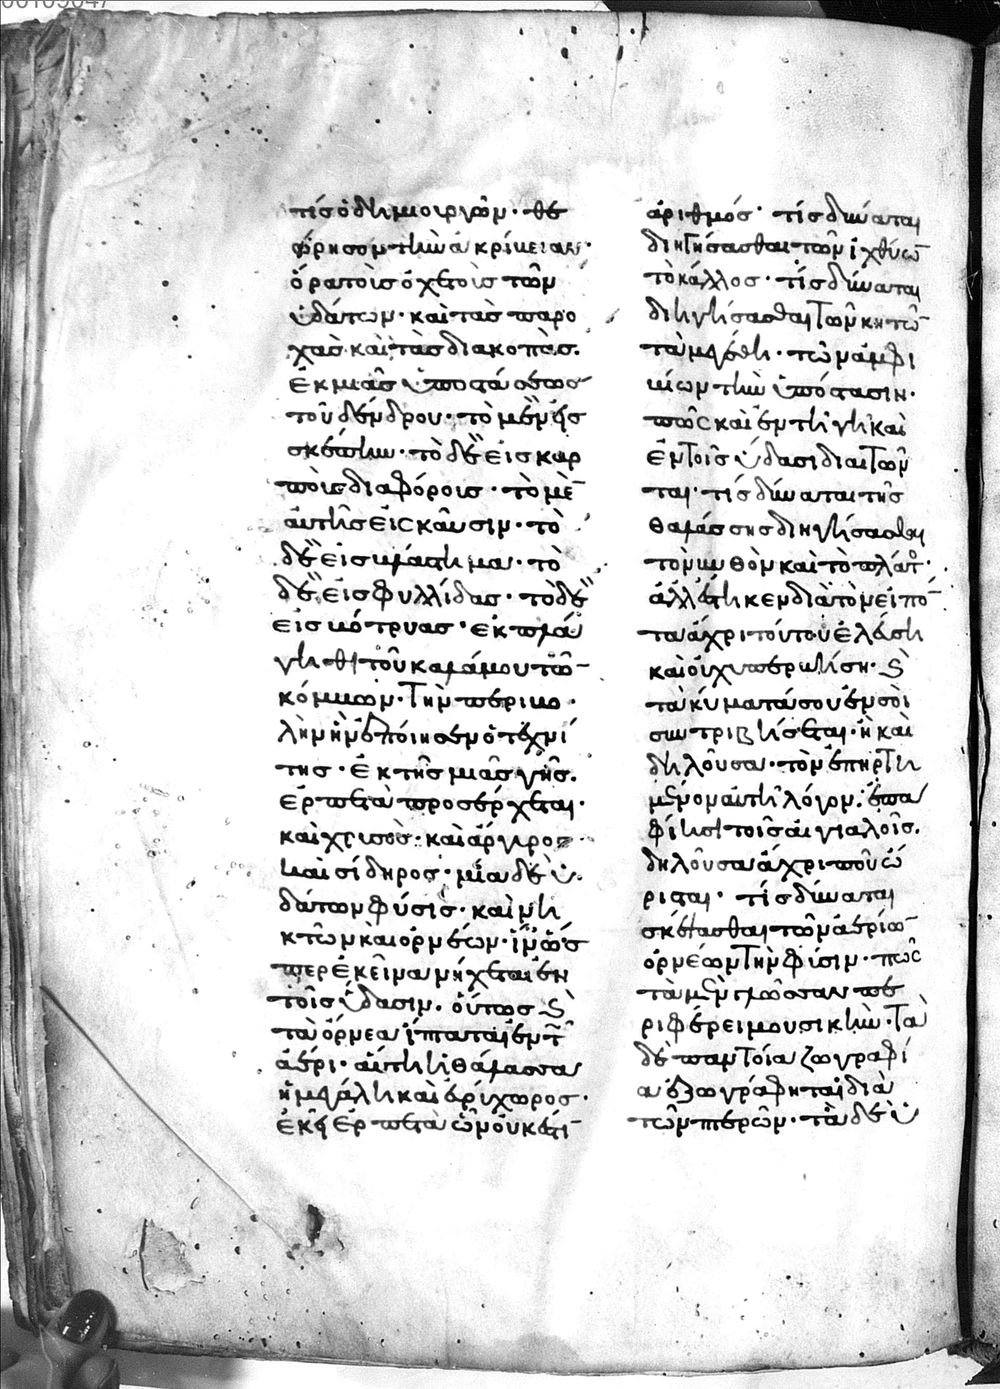 τίς ὁ δημιουργῶν· θε
ώρησον τὴν ἀκρίβειαν·
ὅρα τοὺς ὀχετοὺς τῶν
ὑδάτων· καὶ τὰς παρο
χὰς καὶ τὰς διακοπὰς.
ἐκ μιᾶς ὑποστάσεως
τοῦ δένδρου· τὸ μὲν εἰς
σκέπην· τὸ δὲ εἰς καρ
ποὺς διαφόρους· τὸ μὲ̅
αὐτῆς εἰς καῦσιν· τὸ
δὲ εἰς βλάστημα· τὸ
δὲ εἰς φυλλίδας· τὸ δὲ
εἰς βότρυας· ἐκπλά
γηθι τοῦ καλάμου τῶ̅
κόμβων· τὴν περιβο
λὴν ἣν ἐποίησεν ὁ τεχνί
της· ἐκ τῆς μιᾶς γῆς.
ἑρπετὰ προσέρχεται·
καὶ χρυσὸς· καὶ ἄργυρος
καὶ σίδηρος· μία δὲ ὑ
δάτων φύσις· καὶ νη
κτῶν καὶ ὀρνέων· ἵν' ὥσ
περ ἐκεῖνα νήχεται ἐν
τοῖς ὕδασιν. οὕτως ϗ
τὰ ὄρνεα ἵπταται ἐν τ̅
ἀέρι· αὕτη ἡ θάλασσα
ἡ μεγάλη καὶ εὐρύχωρος·
ἐκεῖ ἑρπετὰ ὧν οὐκ ἔστι
ἀριθμός· τίς δύναται
διηγήσασθαι τῶν ἰχθύω̅
τὸ κάλλος· τίς δύναται
διηγήσασθαι τῶν κητῶ̅
τὰ μεγέθη· τῶν ἀμφι
βίων τὴν ὑπόστασιν·
πῶς καὶ ἐν τῇ γῇ καὶ
ἐν τοῖς ὕδασι διαιτῶν
ται· τίς δύναται τῆς
θαλάσσης διηγήσασθαι
τὸν βυθὸν καὶ τὸ πλάτο·
ἀλλ' ἔστηκεν διὰ τὸν εἰπό̅
τα ἄχρι τούτου ἐλεύση
καὶ οὐχ ὑπερβήση· ϗ
τὰ κύματά σου ἐν σοὶ
συντριβήσεται· ἣ καὶ
δηλοῦσα· τὸν ἐπηρτη
μένον αὐτῇ λόγον. ἐπα
φίησι τοῖς αἰγιαλοῖς.
δηλοῦσα ἄχρι ποῦ ὥ
ρισται· τίς δύναται
σκέψασθαι τῶν ἀερίω̅
ὀρνέων τὴν φύσιν· πῶς
τὰ μὲν γλῶσσαν πε
ριφέρει μουσικὴν· τὰ
δὲ παντοία ζωγραφί
α ἐζωγράφηται διὰ
τῶν πτερῶν· τὰ δὲ ὑ